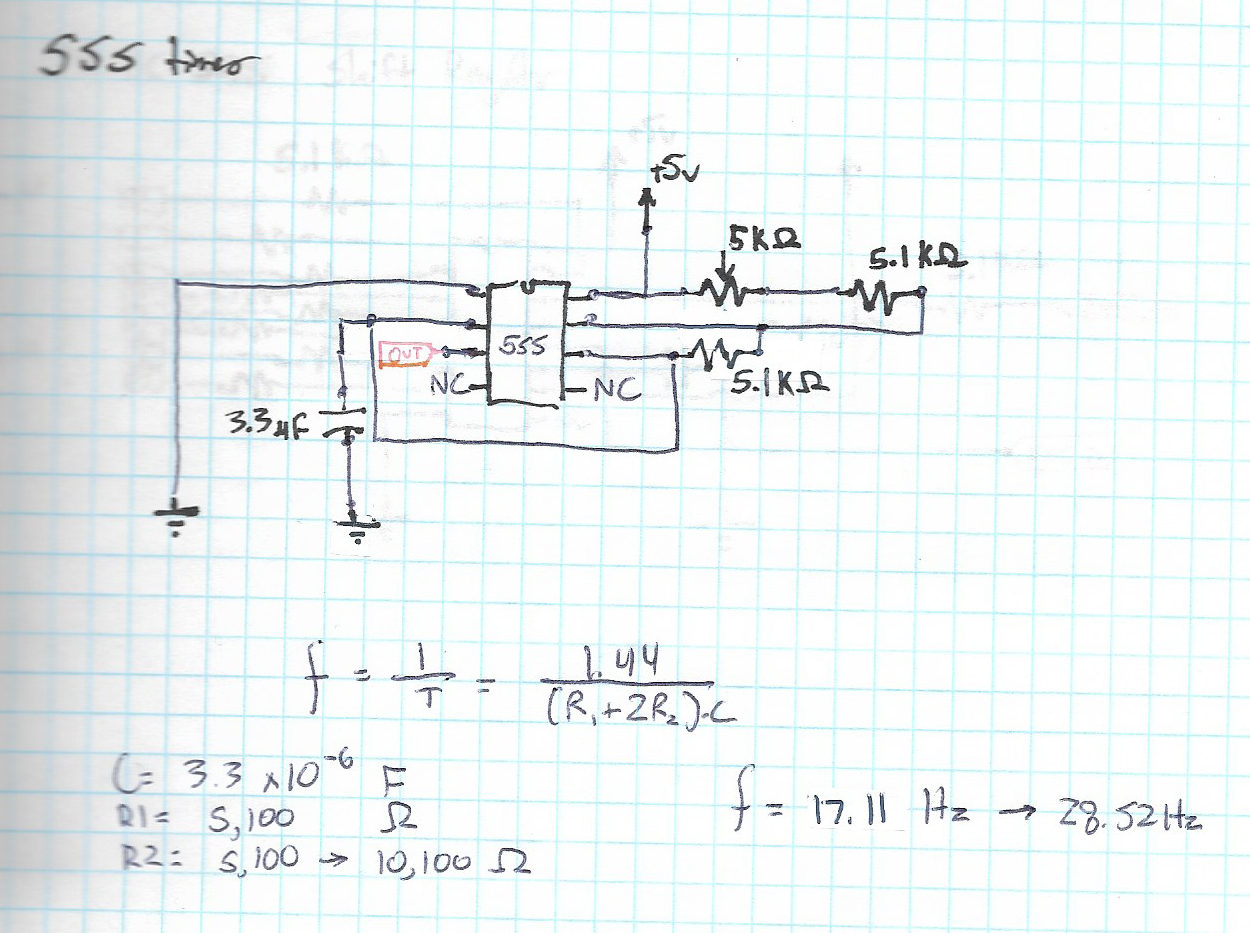 555 timer
+5v
5KΩ
5.1KΩ
OUT
555
NC
NC
5.1KΩ
3.3μF
f = 1/T = 1.44/(R₁+2R₂)·C
C= 3.3 x10⁻⁶ F
R1= 5,100 Ω
R2= 5,100 → 10,100 Ω
f = 17.11 Hz → 28.52Hz